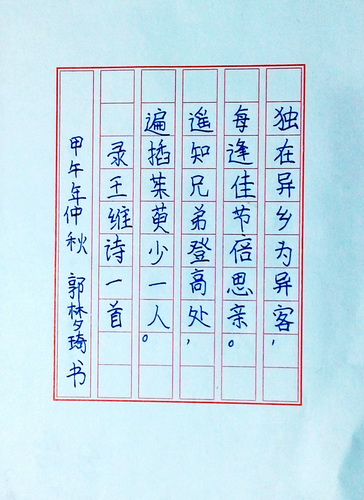 独在异乡为异客，
每逢佳节倍思亲。
遥知兄弟登高处，
遍插茱萸少一人。
录王维诗一首
甲午年仲秋 郭梦琦书